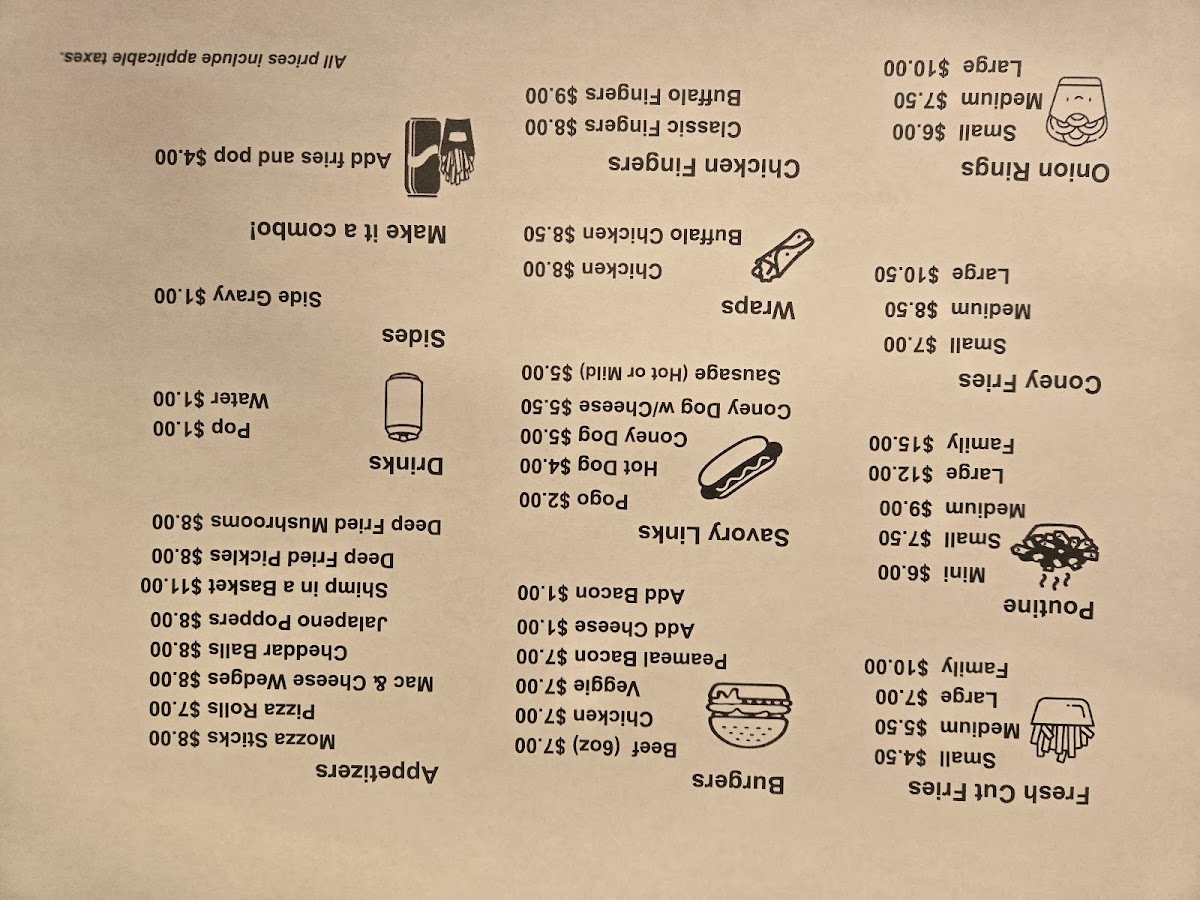 Fresh Cut Fries
Small $4.50
Medium $5.50
Large $7.00
Family $10.00
Poutine
Mini $6.00
Small $7.50
Medium $9.00
Large $12.00
Family $15.00
Coney Fries
Small $7.00
Medium $8.50
Large $10.50
Onion Rings
Small $6.00
Medium $7.50
Large $10.00
Burgers
Beef (6oz) $7.00
Chicken $7.00
Veggie $7.00
Peameal Bacon $7.00
Add Cheese $1.00
Add Bacon $1.00
Savory Links
Pogo $2.00
Hot Dog $4.00
Coney Dog $5.00
Coney Dog w/Cheese $5.50
Sausage (Hot or Mild) $5.00
Wraps
Chicken $8.00
Buffalo Chicken $8.50
Chicken Fingers
Classic Fingers $8.00
Buffalo Fingers $9.00
Appetizers
Mozza Sticks $8.00
Pizza Rolls $7.00
Mac & Cheese Wedges $8.00
Cheddar Balls $8.00
Jalapeno Poppers $8.00
Shimp in a Basket $11.00
Deep Fried Pickles $8.00
Deep Fried Mushrooms $8.00
Drinks
Pop $1.00
Water $1.00
Sides
Side Gravy $1.00
Make it a combo!
Add fries and pop $4.00
All prices include applicable taxes.